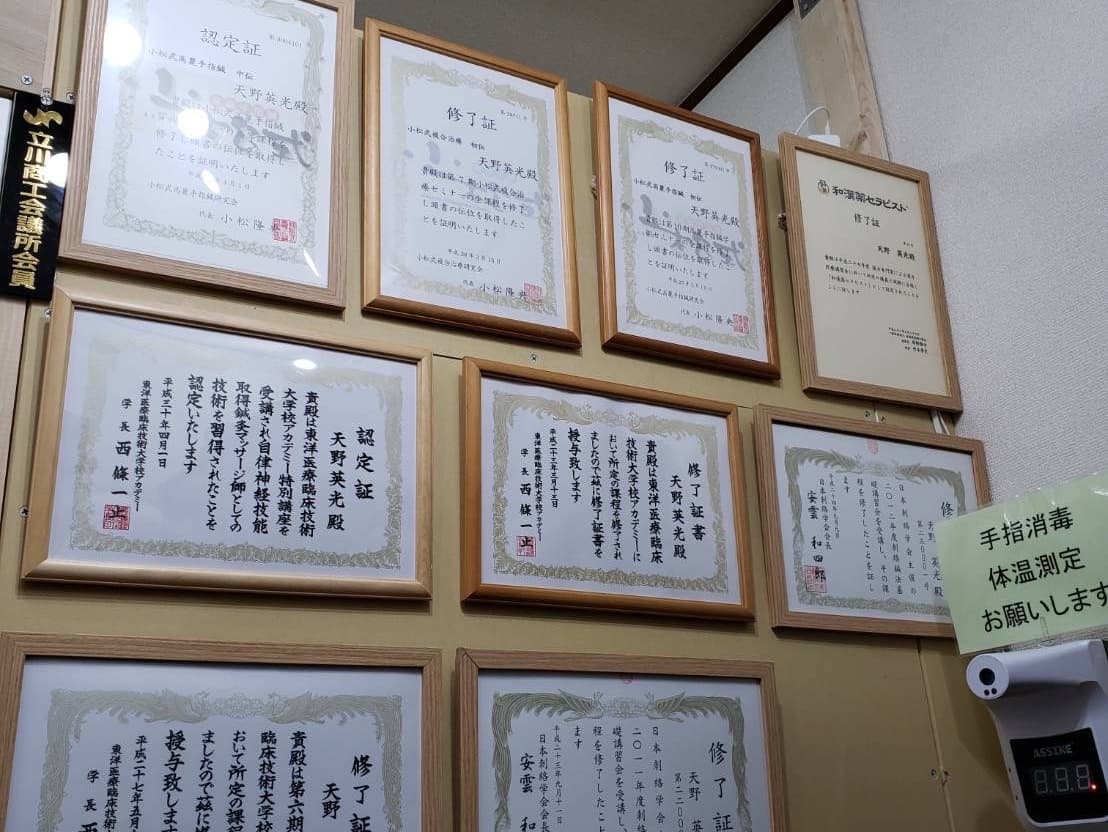 立川商工会議所会員
認定証
小松式高麗手指鍼 中伝
天野英光殿
修了し頭書の伝位を取得し
たことを証明いたします
小松式高麗手指鍼研究会
代表 小松隆央
修了証
小松式複合治療 初伝
天野英光殿
貴殿は第7期小松式複合治
療セミナーの全課程を修了
し頭書の伝位を取得したこ
とを証明いたします
小松式複合治療研究会
代表 小松隆央
修了証
小松式高麗手指鍼 初伝
天野英光殿
し頭書の伝位を取得したこ
とを証明いたします
小松式高麗手指鍼研究会
代表 小松隆央
和漢薬セラピスト
修了証
天野 英光殿
認定証
天野英光殿
貴殿は東洋医療臨床技術
大学校アカデミー特別講座を
受講され自律神経技能
取得鍼灸マッサージ師としての
技術を習得されたことを
認定いたします
平成三十年四月一日
東洋医療臨床技術大学校アカデミー
学長 西條一止
修了証書
天野英光殿
貴殿は東洋医療臨床
技術大学校アカデミーに
おいて所定の課程を修了され
ましたので茲に修了証書を
授与致します
平成二十三年三月十三日
東洋医療臨床技術大学校アカデミー
学長 西條一止
修
天野 英光殿
日本刺絡学会主催の
二〇一二年度刺絡鍼法基
礎講習会を受講し、その課
程を修了したことを証し
ます
平成二十四年九月九日
日本刺絡学会会長
安雲 和四郎
手指消毒
体温測定
お願いします
ASSIKE
8.8.8
修了
天野
貴殿は第六期
臨床技術大学校
おいて所定の課程
ましたので茲に修
授与致します
平成二十七年五月
東洋医療臨床技術大
学長 西
修了証
天野 英
日本刺絡学会
二〇一一年度刺絡
礎講習会を受講し、
程を修了したこと
ます
平成二十三年九月十一日
日本刺絡学会会長
安雲 和